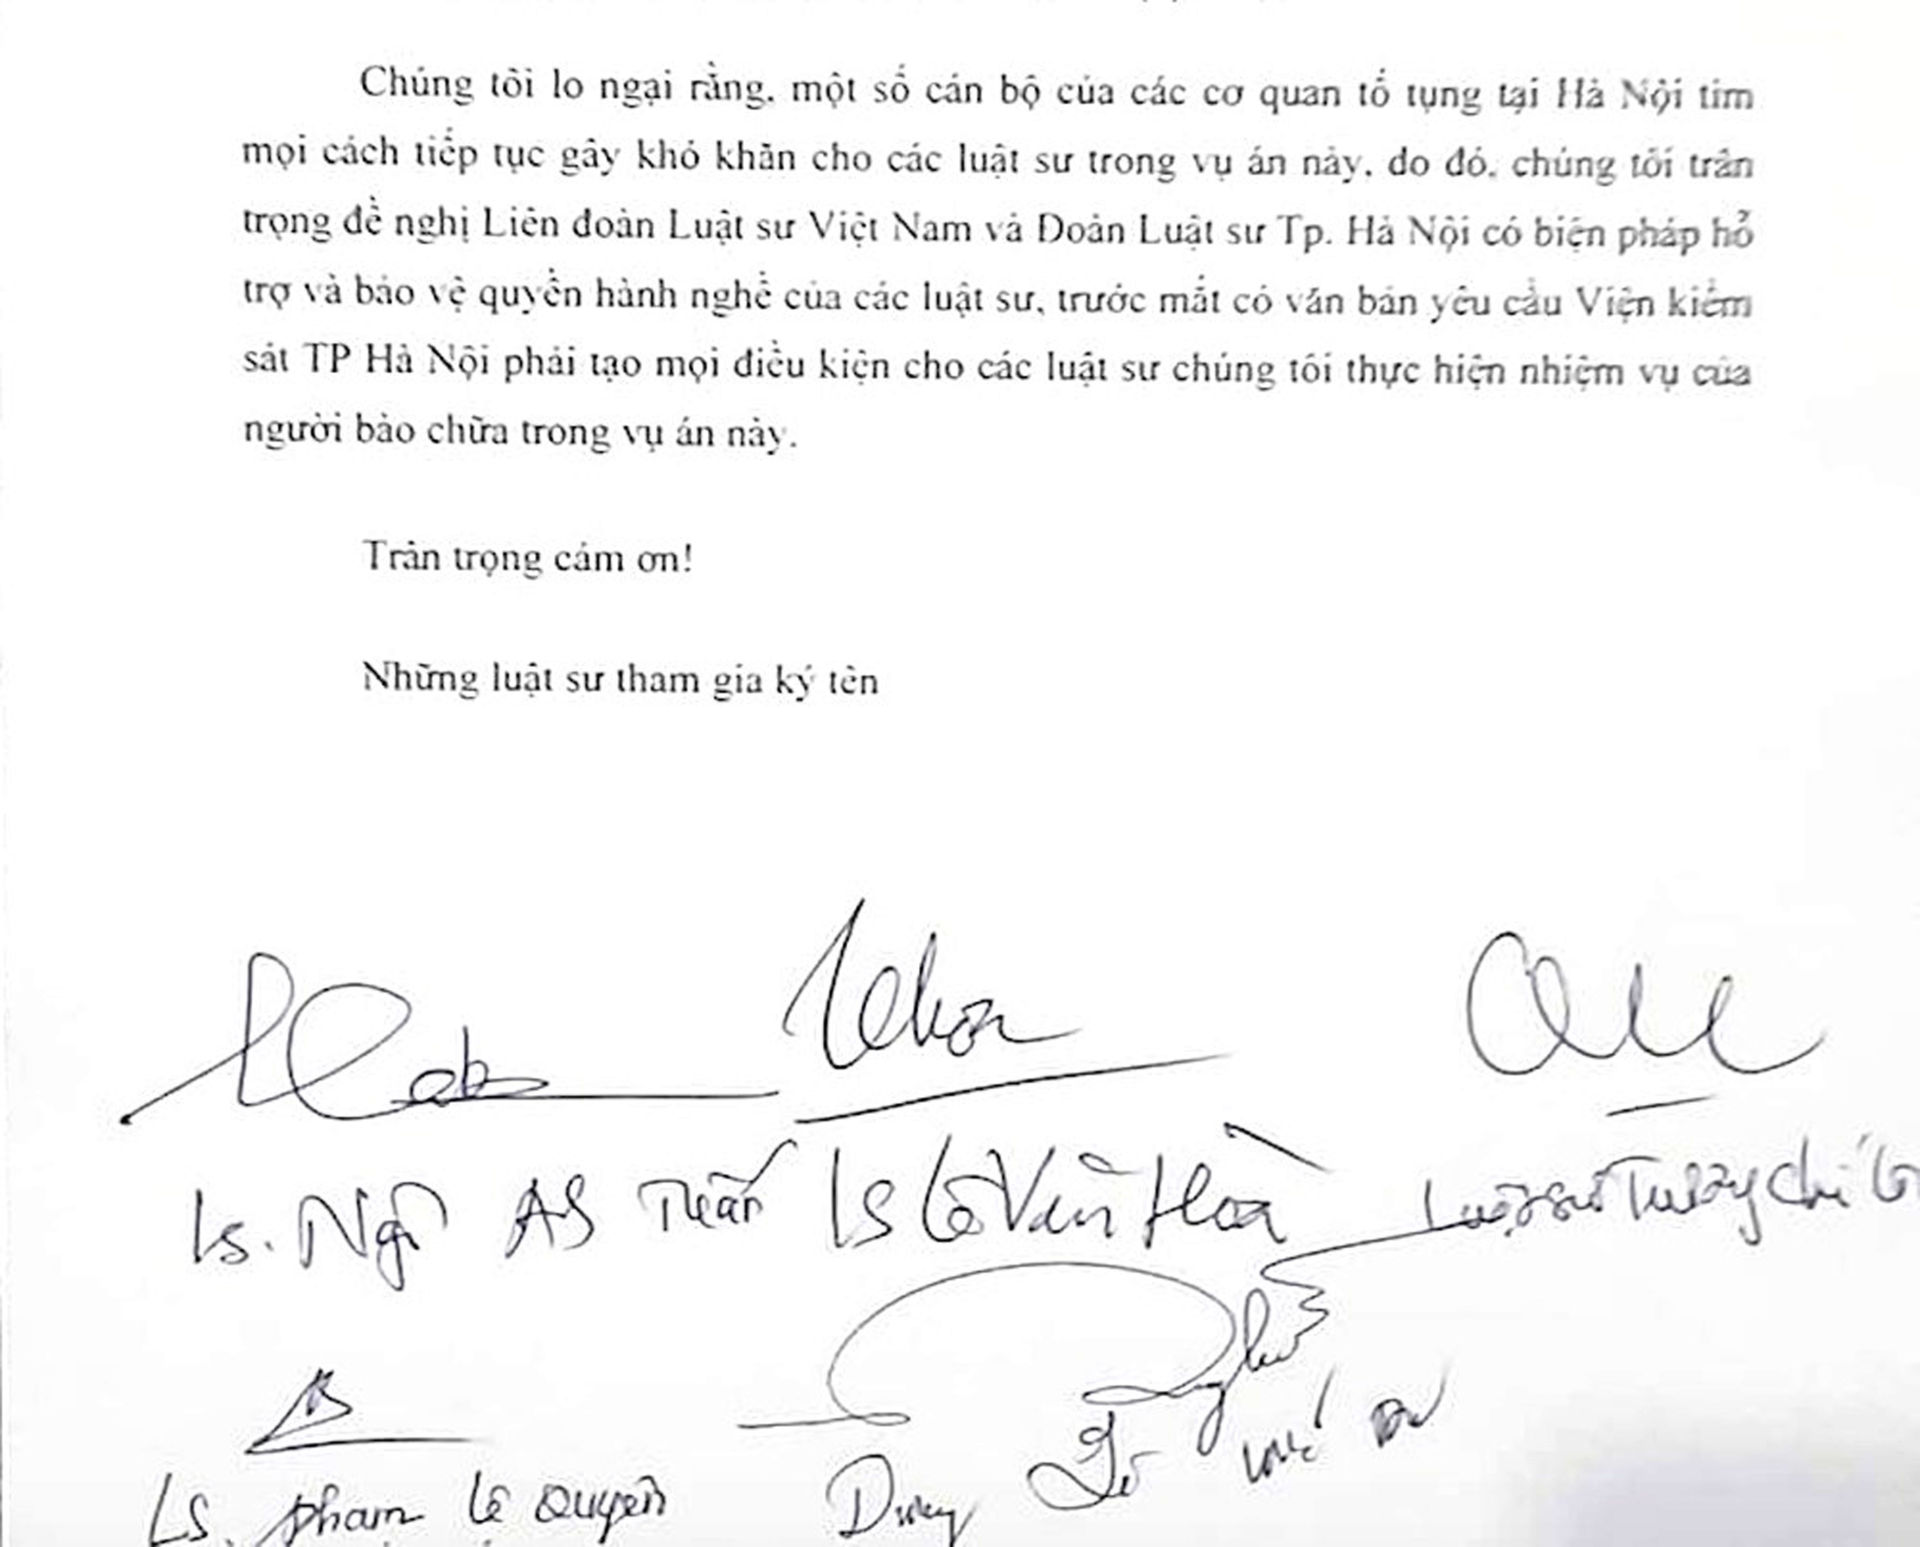 Chúng tôi lo ngại rằng, một số cán bộ của các cơ quan tố tụng tại Hà Nội tìm
mọi cách tiếp tục gây khó khăn cho các luật sư trong vụ án này, do đó, chúng tôi trân
trọng đề nghị Liên đoàn Luật sư Việt Nam và Đoàn Luật sư Tp. Hà Nội có biện pháp hỗ
trợ và bảo vệ quyền hành nghề của các luật sư, trước mắt có văn bản yêu cầu Viện kiểm
sát TP Hà Nội phải tạo mọi điều kiện cho các luật sư chúng tôi thực hiện nhiệm vụ của
người bào chữa trong vụ án này.
Trân trọng cám ơn!
Những luật sư tham gia ký tên
Ls. Ngô Tuấn LS Lê Văn Hoà Luật sư
LS. Phạm Lệ Quyên